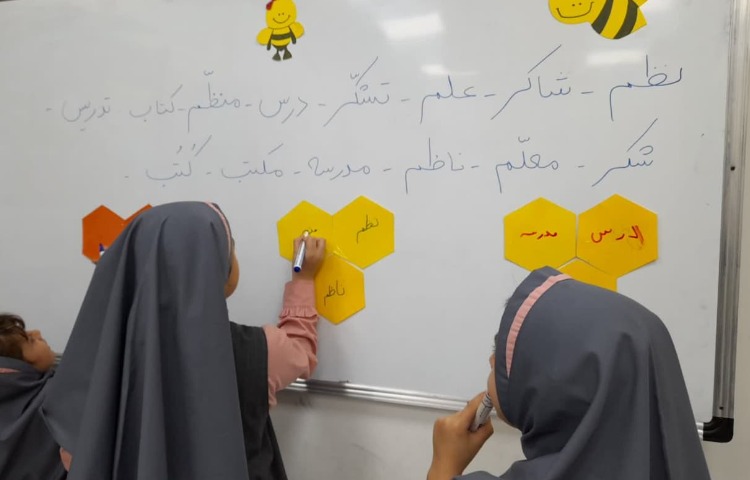 نظم - شاکر - علم - تشکّر - درس - منظّم - کتاب تدریس -
شکر - معلّم - ناظم - مدرسه - مکتب - کُتُب -
نظم
ناظم
درس
مدرسه